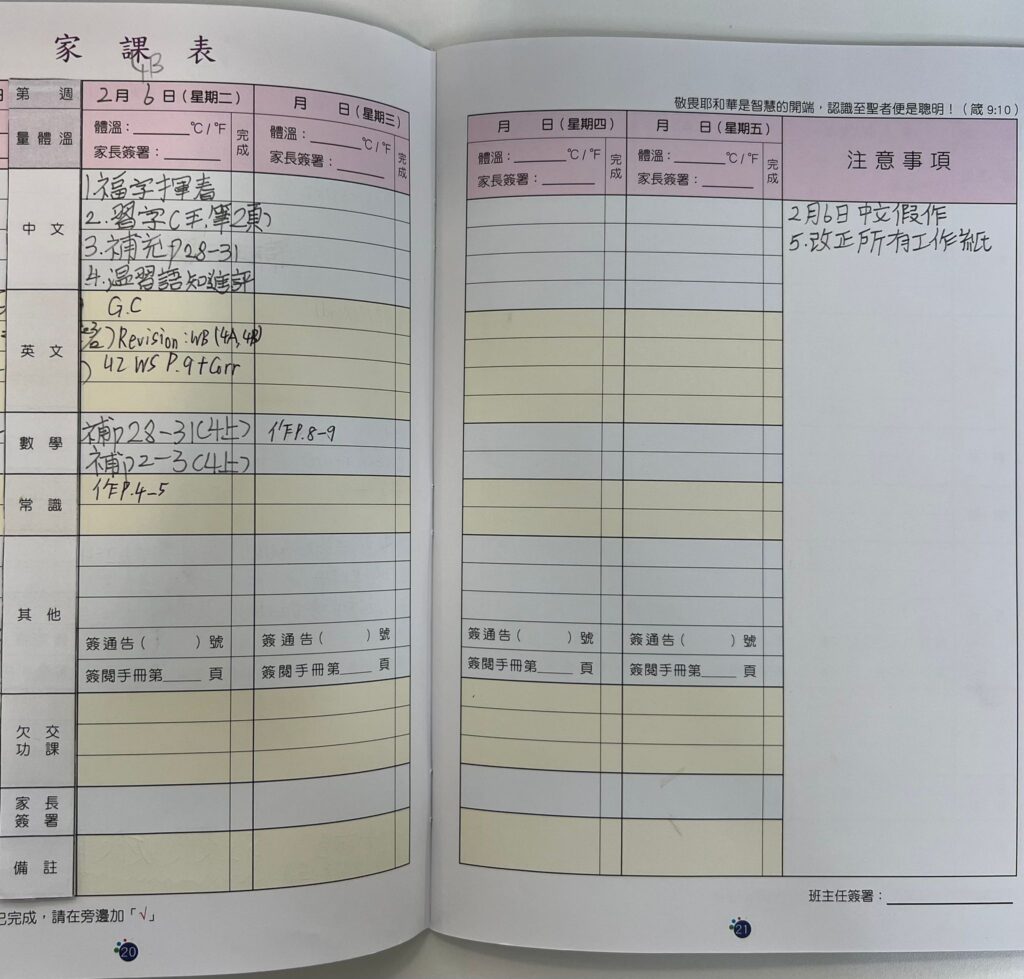 家課表
4B
第 週
2月6日(星期二)
月 日(星期三)
量體溫
體溫：______°C/°F
家長簽署：______
完成
體溫：______°C/°F
家長簽署：______
完成
中文
1.福字揮春
2.習字(毛.筆2頁)
3.補充P28-31
4.溫習語知進評
英文
G.C
Revision:WB(4A,4B)
42 WS P.9+Corr
數學
補P28-31(4上)
補P2-3(4上)
作P.8-9
常識
作P.4-5
其他
簽通告( )號
簽閱手冊第____頁
簽通告( )號
簽閱手冊第____頁
欠交功課
家長簽署
備註
已完成，請在旁邊加「√」
20
敬畏耶和華是智慧的開端，認識至聖者便是聰明！（箴 9:10）
月 日(星期四)
月 日(星期五)
體溫：______°C/°F
家長簽署：______
完成
體溫：______°C/°F
家長簽署：______
完成
注意事項
2月6日中文假作
5.改正所有工作紙
簽通告( )號
簽閱手冊第____頁
簽通告( )號
簽閱手冊第____頁
班主任簽署：______
21